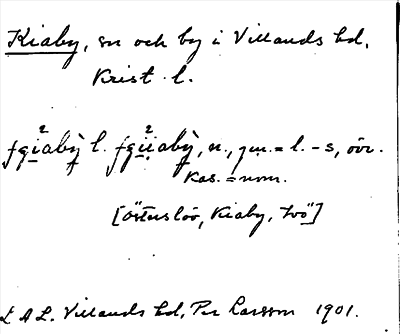 Kiaby, sn och by i Villands hd,
Krist l.
l. n., gm. = l. -s, övr.
kas. = nom.
[Östuslöv, Kiaby, Ivö]
L A L. Villands hd, Per Larsson 1901.